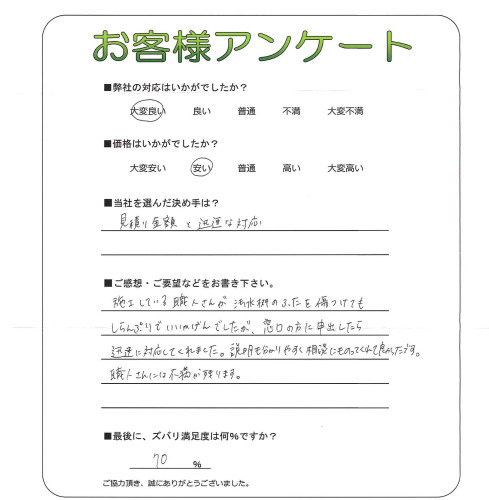 お客様アンケート
■弊社の対応はいかがでしたか？
大変良い 良い 普通 不満 大変不満
■価格はいかがでしたか？
大変安い 安い 普通 高い 大変高い
■当社を選んだ決め手は？
見積り金額と迅速な対応
■ご感想・ご要望などをお書き下さい。
施工している職人さんが汚水桝のふたを傷つけても
しらんぷりでいいかげんでしたが、窓口の方に申出したら
迅速に対応してくれました。説明も分かりやすく相談にものってくれて良かったです。
職人さんには不満が残ります。
■最後に、ズバリ満足度は何%ですか？
70 %
ご協力頂き、誠にありがとうございました。